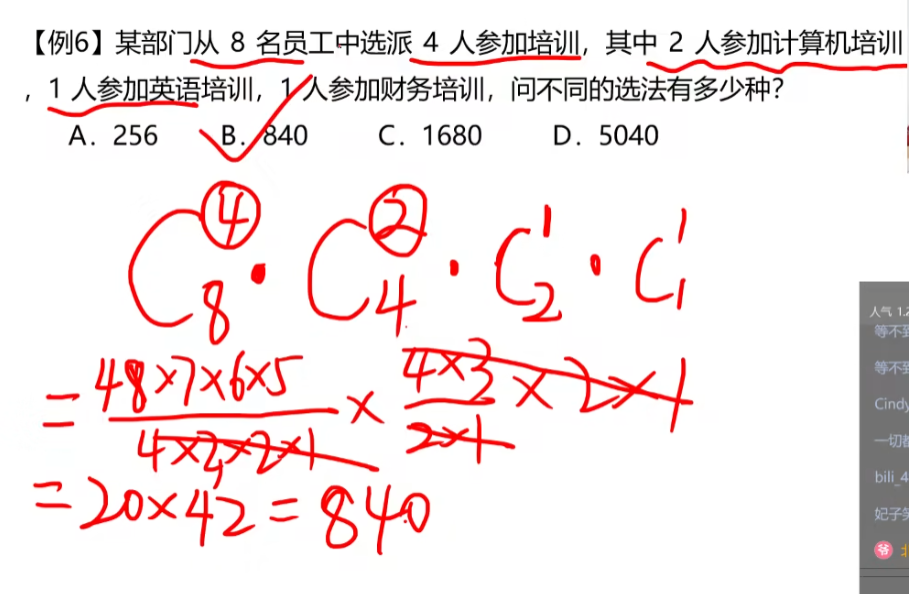 【例6】某部门从 8 名员工中选派 4 人参加培训，其中 2 人参加计算机培训
，1 人参加英语培训，1 人参加财务培训，问不同的选法有多少种？
A．256 B．840 C．1680 D．5040
C₈⁴·C₄²·C₂¹·C₁¹
=48×7×6×5/4×3×2×1×4×3/2×1×2×1
=20×42=840
人气 1.2
等不到
等不到
Cindy
一切都
bili_4
妃子笑
爷